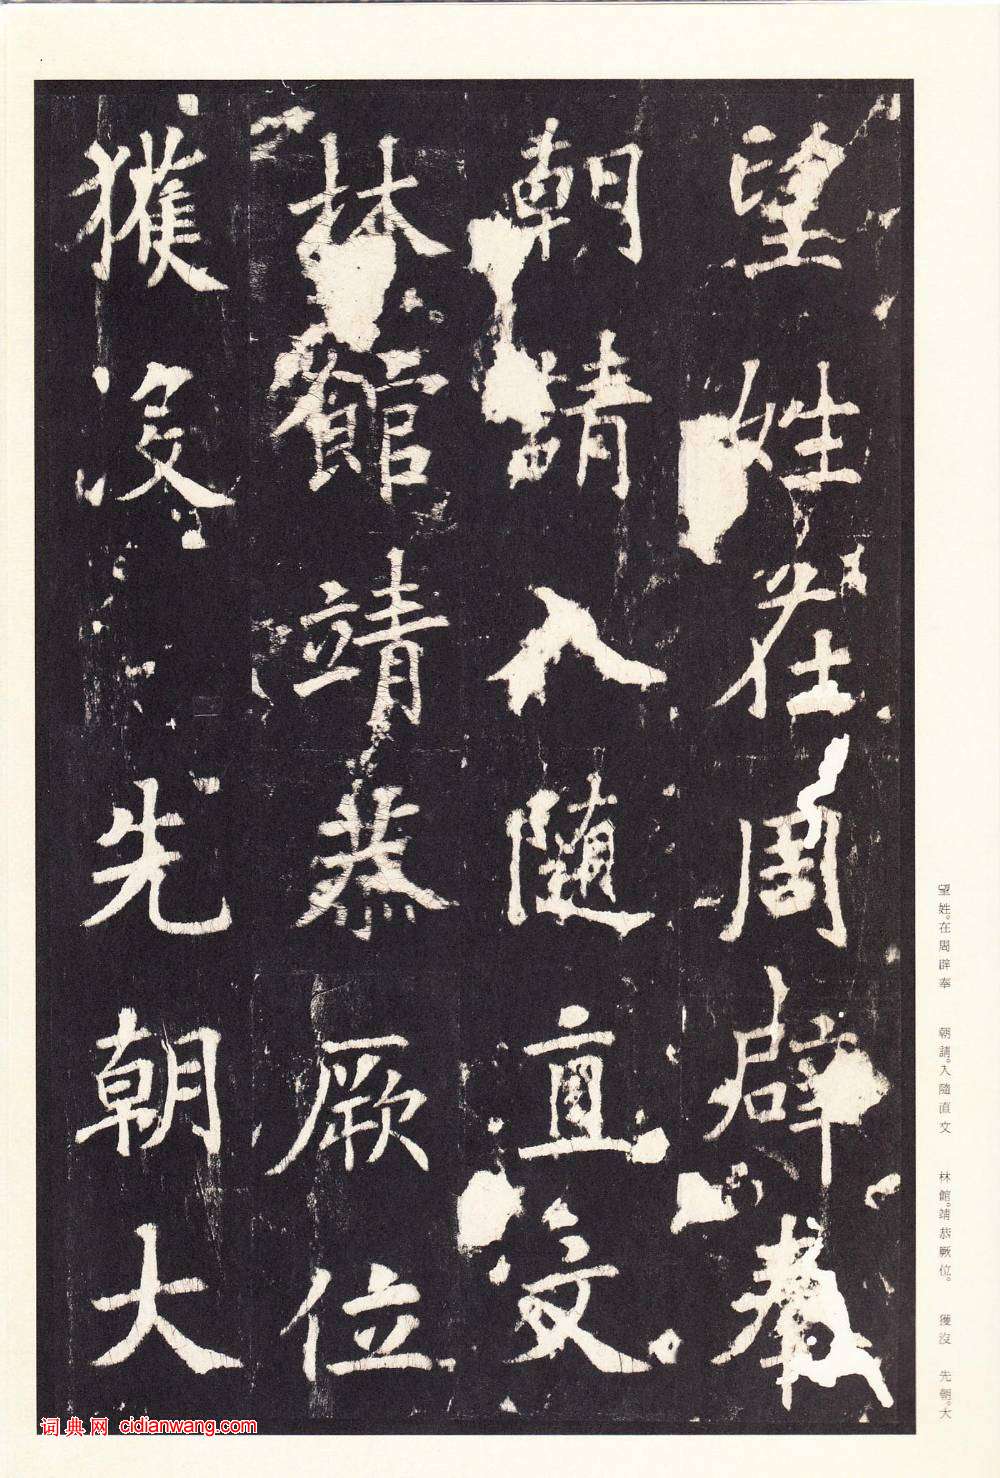 望姓在周辟奉
朝請入隨直文
林館靖恭厥位
獲没先朝大
望姓。在周辟奉　朝請。入隨直文　林館。靖恭厥位。　獲沒　先朝。大
词典网 cidianwang.com